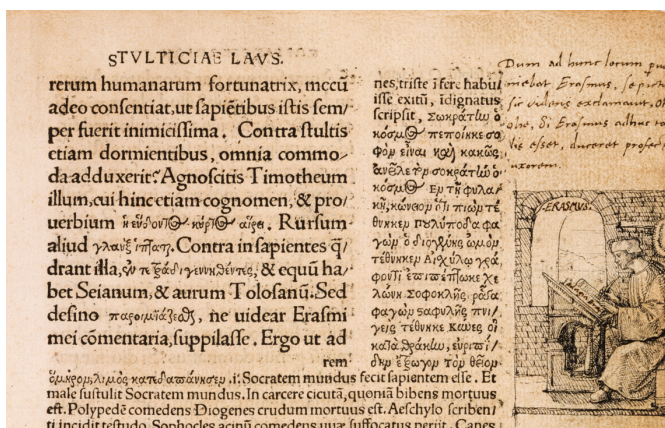 STVLTICIAE LAVS.
rerum humanarum fortunatrix, mecū
adeo consentiat, ut sapiētibus istis sem/
per fuerit inimicissima. Contra stultis
etiam dormientibus, omnia commo/
da adduxerit? Agnoscitis Timotheum
illum, cui hinc etiam cognomen, & pro/
uerbium ἡ εὕδοντος κύρτος αἱρεῖ. Rursum
aliud γλαὺξ ἵπταται. Contra in sapientes q̄
drant illa, ἐν τετράδι γεννηθέντες, & equū ha/
bet Seianum, & aurum Tolosanū. Sed
desino παροιμιάζεσθαι, ne uidear Erasmi
mei cōmentaria, suppilasse. Ergo ut ad
rem
nes, triste ī fere habu/
isse exitū, īdignatus
scripsit, Σωκράτην ὁ
κόσμος πεποίηκε σο
φὸν εἶναι καὶ κακῶς
ἀνεῖλε τὸν σοκράτην ὁ
κόσμος Εν τῇ φυλα/
κῇ, κώνειον ὅτι πιὼν τέ
θνηκεν πολύποδα φα
γὼν ὁ διογένης ὠμὸν
τέθνηκεν Αἰσχύλῳ γρά
φοντι ἐπιπέπτωκε χε
λώνη Σοφοκλῆς ῥᾶγα
φαγὼν σαφυλῆς πνι/
γεὶς τέθνηκε Κύνες οἱ
κατὰ θράκην, εὐριπί/
δην ἔτρωγον τὸν θεῖον
ὅμηρον, λιμὸς κατεδαπάνησεν .i. Socratem mundus fecit sapientem esse. Et
male sustulit Socratem mundus. In carcere cicutā, quoniā bibens mortuus
est. Polypedē comedens Diogenes crudum mortuus est. Aeschylo scriben/
ti incidit testudo. Sophocles acinū comedens uuæ suffocatus periit. Canes
Dum ad hunc locum
niebat Erasmus, se pict
sic videns exclamavit, O
ohe, si Erasmus adhuc ta
lis esset, duceret profecto
uxorem.
ERASMVS.